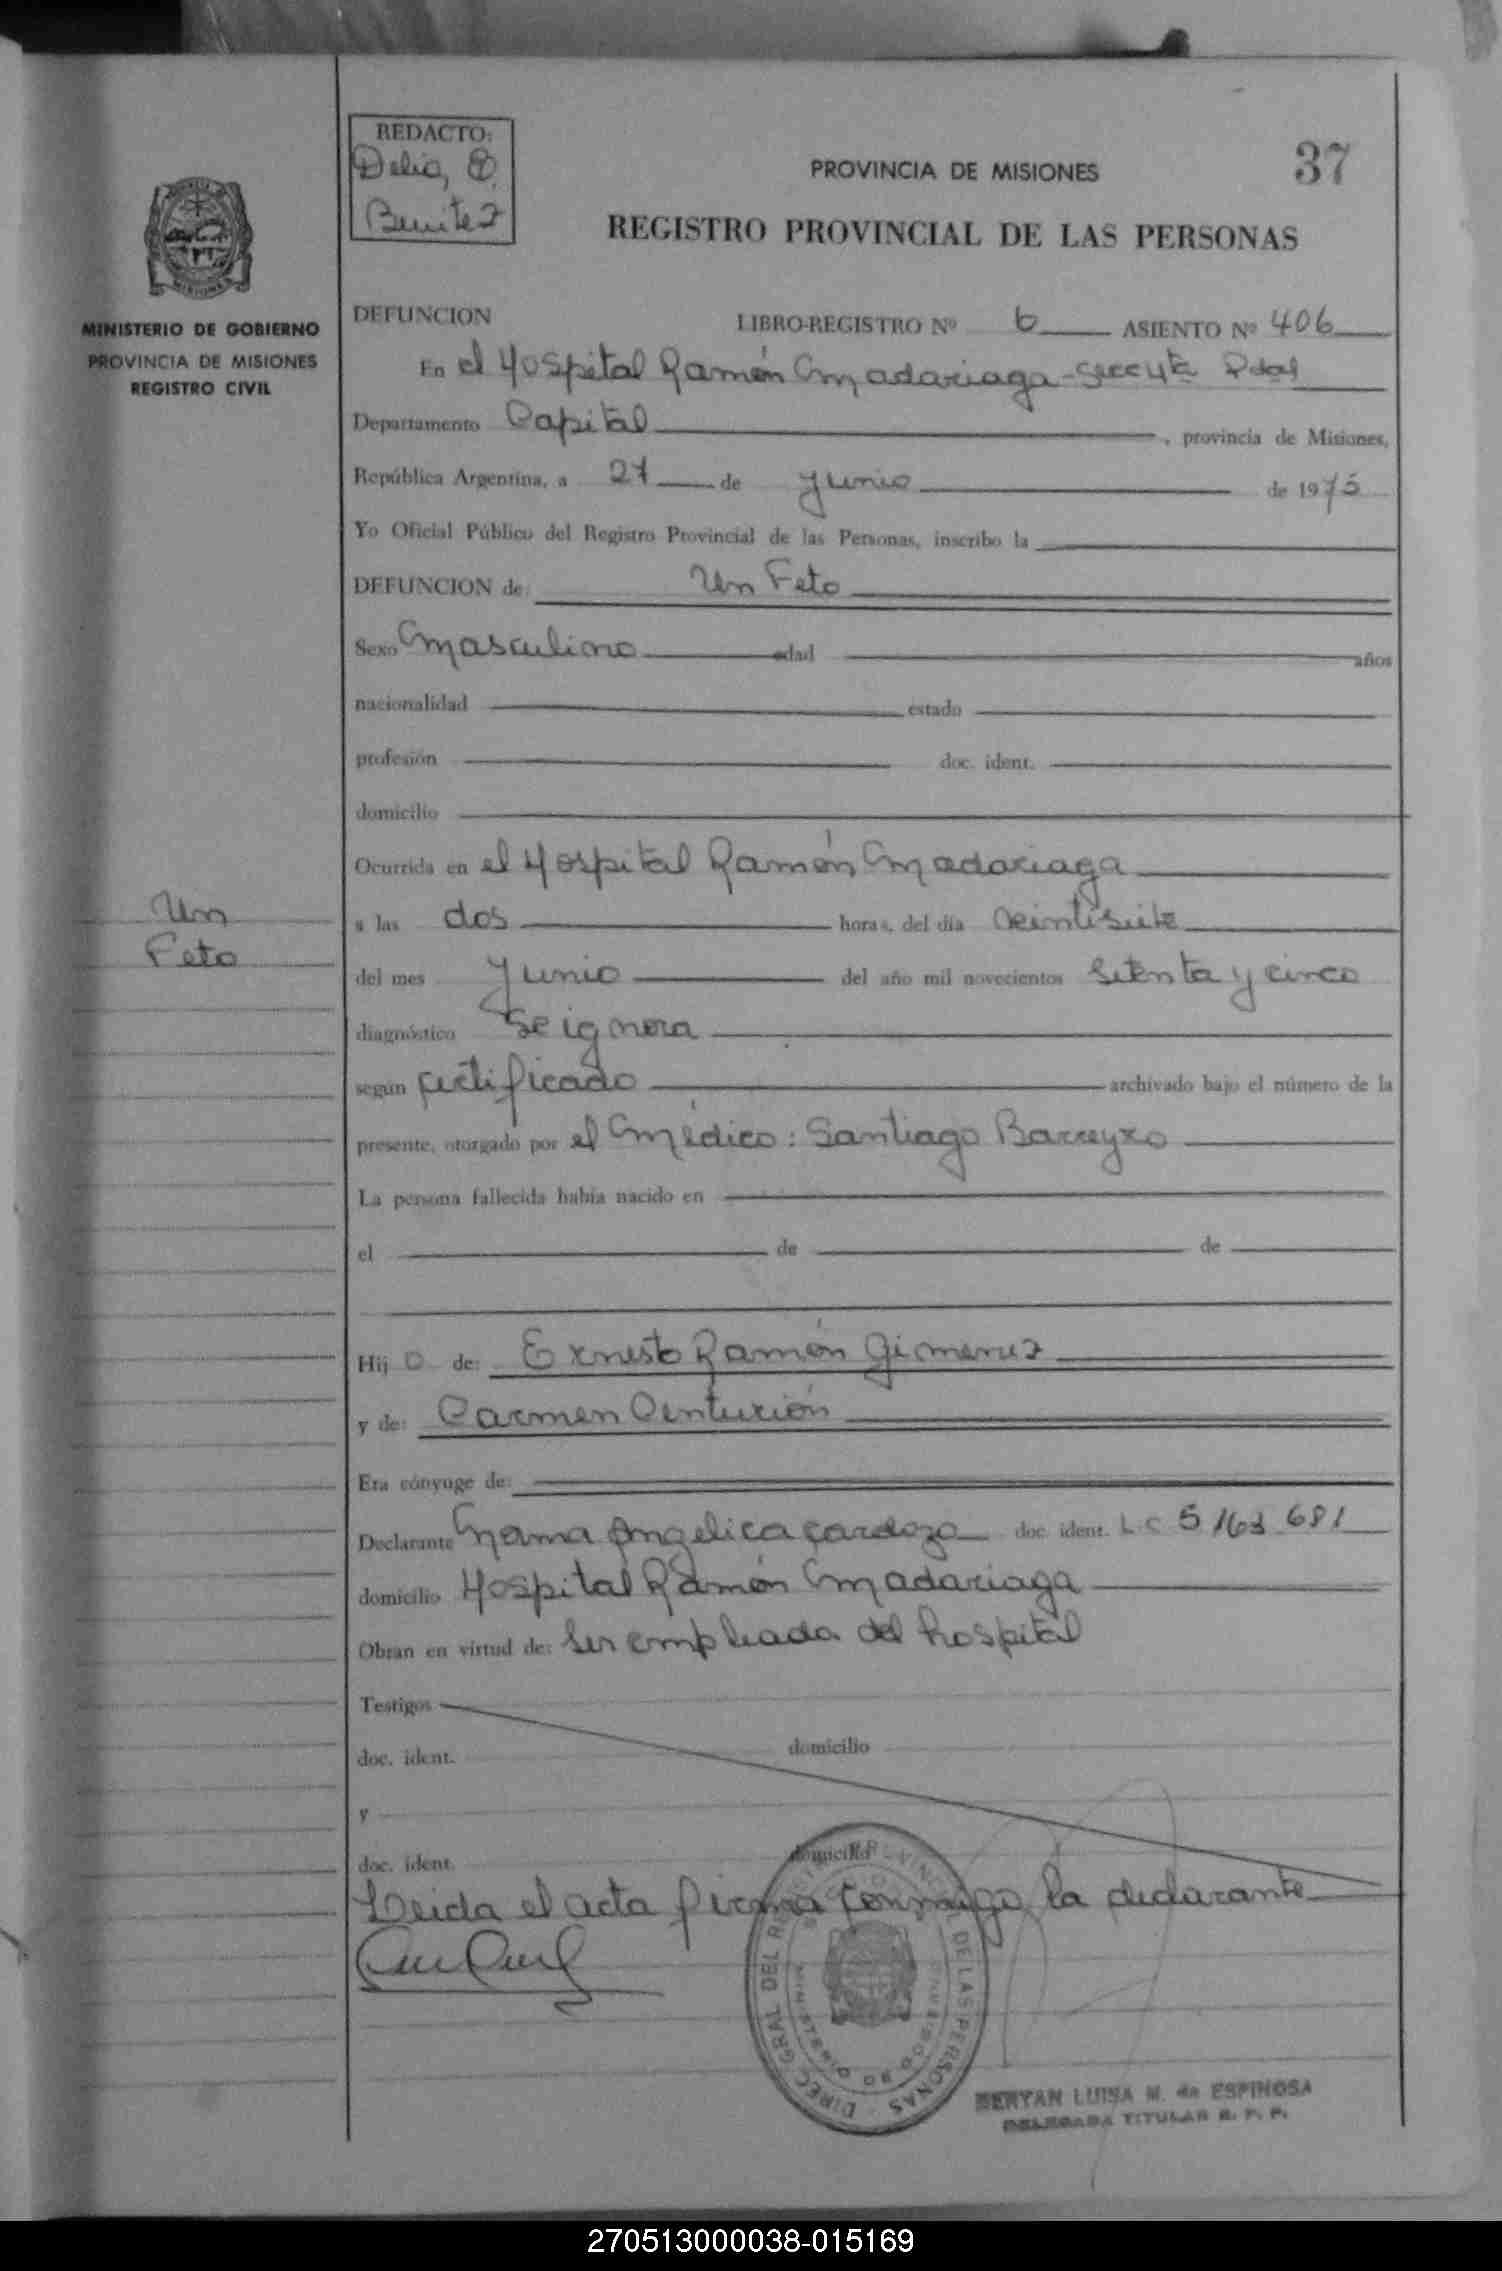 REDACTO:
Delia, E.
Benitez
37
PROVINCIA DE MISIONES
REGISTRO PROVINCIAL DE LAS PERSONAS
MINISTERIO DE GOBIERNO
PROVINCIA DE MISIONES
REGISTRO CIVIL
DEFUNCION LIBRO-REGISTRO Nº 6 ASIENTO Nº 406
En el Hospital Ramón Madariaga - Pdas
Departamento Capital, provincia de Misiones,
República Argentina, a 27 de Junio de 1975
Yo Oficial Público del Registro Provincial de las Personas, inscribo la
DEFUNCION de: Un Feto
Sexo Masculino edad años
nacionalidad estado
profesión doc. ident.
domicilio
Ocurrida en el Hospital Ramón Madariaga
Un
Feto
a las dos horas, del día veintisiete
del mes Junio del año mil novecientos setenta y cinco
diagnóstico Se ignora
según certificado archivado bajo el número de la
presente, otorgado por el Médico: Santiago Barreyro
La persona fallecida había nacido en
el de de
Hijo de: Ernesto Ramón Gimenez
y de: Carmen Centurión
Era cónyuge de:
Declarante Norma Angelica Cardozo doc. ident. L C 5 163 681
domicilio Hospital Ramón Madariaga
Obran en virtud de: ser empleada del hospital
Testigos
doc. ident. domicilio
y
doc. ident. domicilio
Leida el acta firma conmigo la declarante
DIREC. GRAL. DEL REG. PROVINCIAL DE LAS PERSONAS
MINISTERIO DE GOBIERNO
BERYAN LUISA M. de ESPINOSA
DELEGADA TITULAR R. P. P.
270513000038-015169